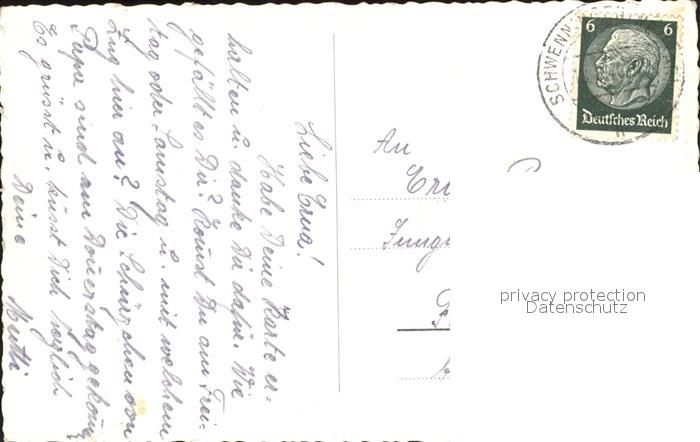 Liebe Erna!
Habe Deine Karte er-
halten u. danke Dir dafür. Wie
gefällt es Dir? Kommst Du am Frei-
tag oder Samstag u. mit welchem
Zug hier an? Die Schürzchen von
Papa sind am Donnerstag gekomm
Es grüsst u. küsst Dich herzlich
Deine Mutti
An
SCHWENN
6 6
Deutsches Reich
privacy protection
Datenschutz